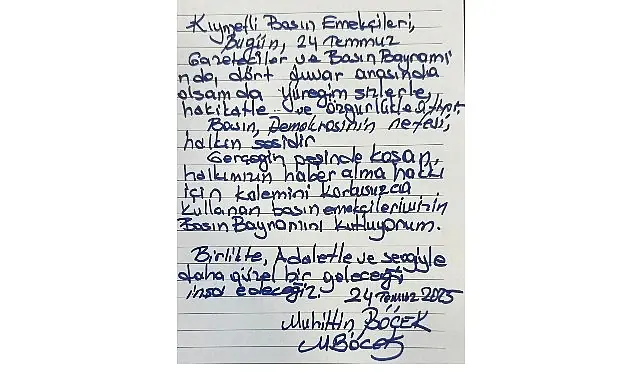 Kıymetli Basın Emekçileri,
Bugün, 24 Temmuz
Gazeteciler ve Basın Bayramı
nda, dört duvar arasında
olsam da yüreğim sizlerle,
hakikatle ve özgürlükle atıyor.
Basın, Demokrasinin nefesi,
halkın sesidir
Gerçeğin peşinde koşan,
halkımızın haber alma hakkı
için kalemini korkusuzca
kullanan basın emekçilerimizin
Basın Bayramını kutluyorum.
Birlikte, Adaletle ve sevgiyle
daha güzel bir geleceği
inşa edeceğiz.
24 Temmuz 2025
Muhittin BÖCEK
MBöcek